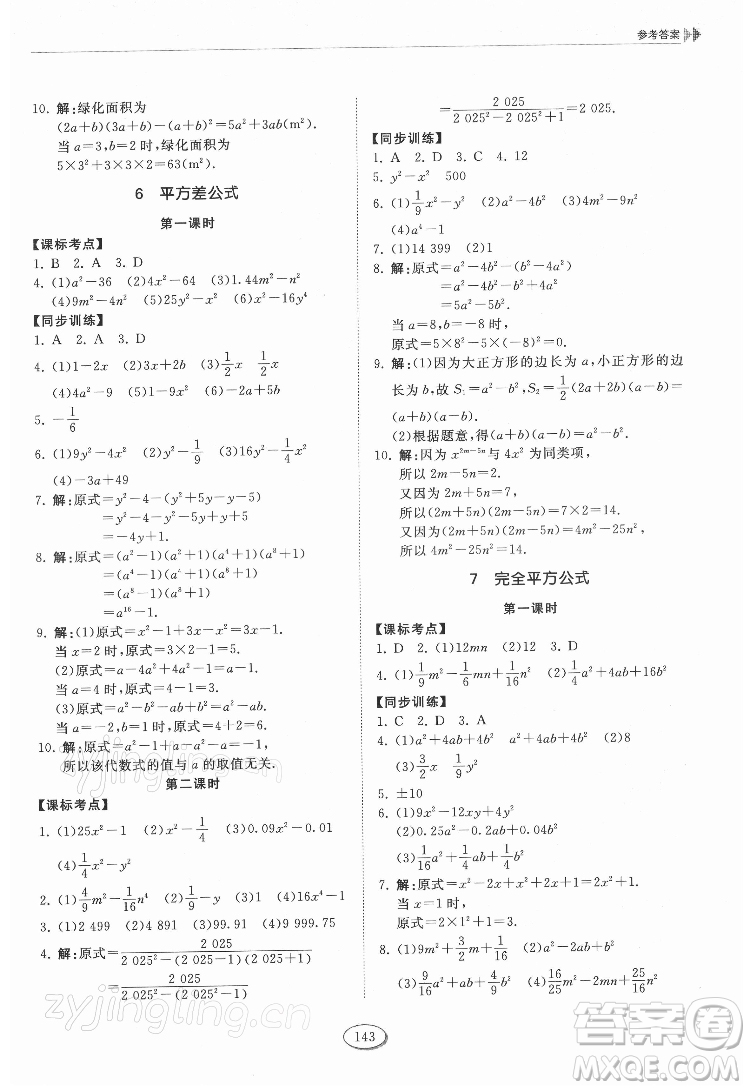 参考答案
10. 解:绿化面积为
(2a+b)(3a+b)-(a+b)²=5a²+3ab(m²).
当a=3,b=2时,绿化面积为
5×3²+3×3×2=63(m²).
6 平方差公式
第一课时
【课标考点】
1. B 2. A 3. D
4. (1)a²-36 (2)4x²-64 (3)1.44m²-n²
(4)9m²-4n² (5)25y²-x² (6)x²-16y⁴
【同步训练】
1. A 2. A 3. D
4. (1)1-2x (2)3x+2b (3)1/2x 1/2x
(4)4a²-9 (5)1-9x² (6)-2a+5b
5. -1/6
6. (1)9y²-4x² (2)4x²-y² (3)9y²-4x²
(4)-3a+49
7. 解:原式=y²-4-(y²+5y-y-5)
=y²-4-y²-5y+y+5
=-4y+1.
8. 解:原式=(a²-1)(a²+1)(a⁴+1)(a⁸+1)
=(a⁴-1)(a⁴+1)(a⁸+1)
=(a⁸-1)(a⁸+1)
=a¹⁶-1.
9. 解:(1)原式=x²-1+3x-x²=3x-1.
当x=2时,原式=3×2-1=5.
(2)原式=a-4a²+4a²-1=a-1.
当a=4时,原式=4-1=3.
(3)原式=4-a²+a²-ab=4-ab.
当a=-2,b=1时,原式=4+2=6.
10. 解:原式=a²-1-a²-1=-2,
所以该代数式的值与a的取值无关.
第二课时
【课标考点】
1. (1)25x²-1 (2)x²-1/4 (3)0.09x²-0.01
(4)1/4x²-y²
2. (1)4/9m²-1/16n⁴ (2)9 (3)1 (4)5x-1
3. (1)2 499 (2)4 891 (3)99.91 (4)9 999.75
4. 解:原式=2 025/2 025²-(2 025-1)(2 025+1)
=2 025/2 025²-(2 025²-1)
=2 025/2 025²-2 025²+1=2 025.
【同步训练】
1. A 2. D 3. C 4. 12
5. y²-x² 500
6. (1)1/9x²-y² (2)a²-4b² (3)4m²-9n²
(4)a⁴-1
7. (1)14 399 (2)1
8. 解:原式=a²-4b²-(-4a²-b²)
=a²-4b²+4a²-b²
=5a²-5b².
当a=8,b=-8时,
原式=5×8²-5×(-8)²=0.
9. 解:(1)因为大正方形的边长为a,小正方形的边
长为b,故S₁=a²-b²,S₂=1/2(2a+2b)(a-b)=
(a+b)(a-b).
(2)根据题意,得(a+b)(a-b)=a²-b².
10. 解:因为x²ᵐ⁻⁵ⁿ与4x²为同类项,
所以2m-5n=2.
又因为2m+5n=7,
所以(2m+5n)(2m-5n)=7×2=14.
又因为(2m+5n)(2m-5n)=4m²-25n²,
所以4m²-25n²=14.
7 完全平方公式
第一课时
【课标考点】
1. D 2. A 3. (1)12mn (2)12mn
4. (1)1/9m²-1/6mn+1/16n² (2)1/4a²+4ab+16b²
【同步训练】
1. C 2. D 3. A
4. (1)a²+4ab+4b² a²-4ab+4b² (2)8
(3)3/2x 1/9y²
5. ±10
6. (1)9x²-12xy+4y²
(2)0.25a²-0.2ab+0.04b²
(3)1/16a²+1/4ab+1/4b²
7. 解:原式=x²-2x+1+x²+2x=2x²+1.
当x=1时,
原式=2×1²+1=3.
8. (1)9m²+3/2m+1/16 (2)a²+4ab+4b²
(3)9/16a²-9/4ab+9/4b² (4)16/25m²-2mn+25/16n²
143
答案卷
MXQE.COM
zyjl
zyjingling.com